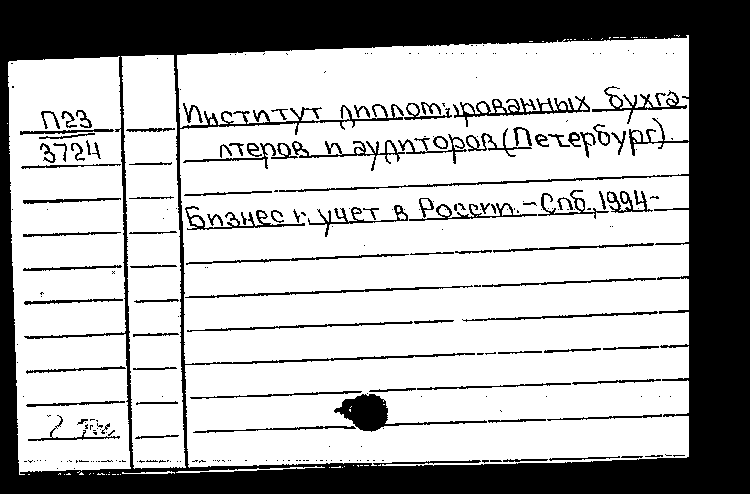 П23
3724
Институт дипломированных бухга-
лтеров и аудиторов (Петербург).
Бизнес и учет в России. - Спб., 1994-